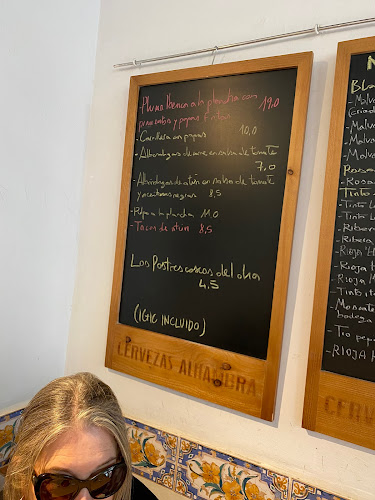 Pluma Iberica a la plancha con 19,0
pimientos y papas fritas
- Carrillera con papas 10,0
- Albondigas de carne en salsa de tomate
7,0
- Albondigas de atún en salsa de tomate
y aceitunas negras 8,5
- Pulpo a la plancha 11.0
- Tacos de atún 8,5
Los Postres caseros del dia
4.5
(IGIC INCLUIDO)
CERVEZAS ALHAMBRA
- Malva
- Malva
- Malva
- Malva
Rosa
Tinto
- Tinto
- Ribera
- Ribera
- Rioja
- Rioja H
- Rioja
- Tinto
- Moscate
bodega
- Tio pepe
- RIOJA
CERV